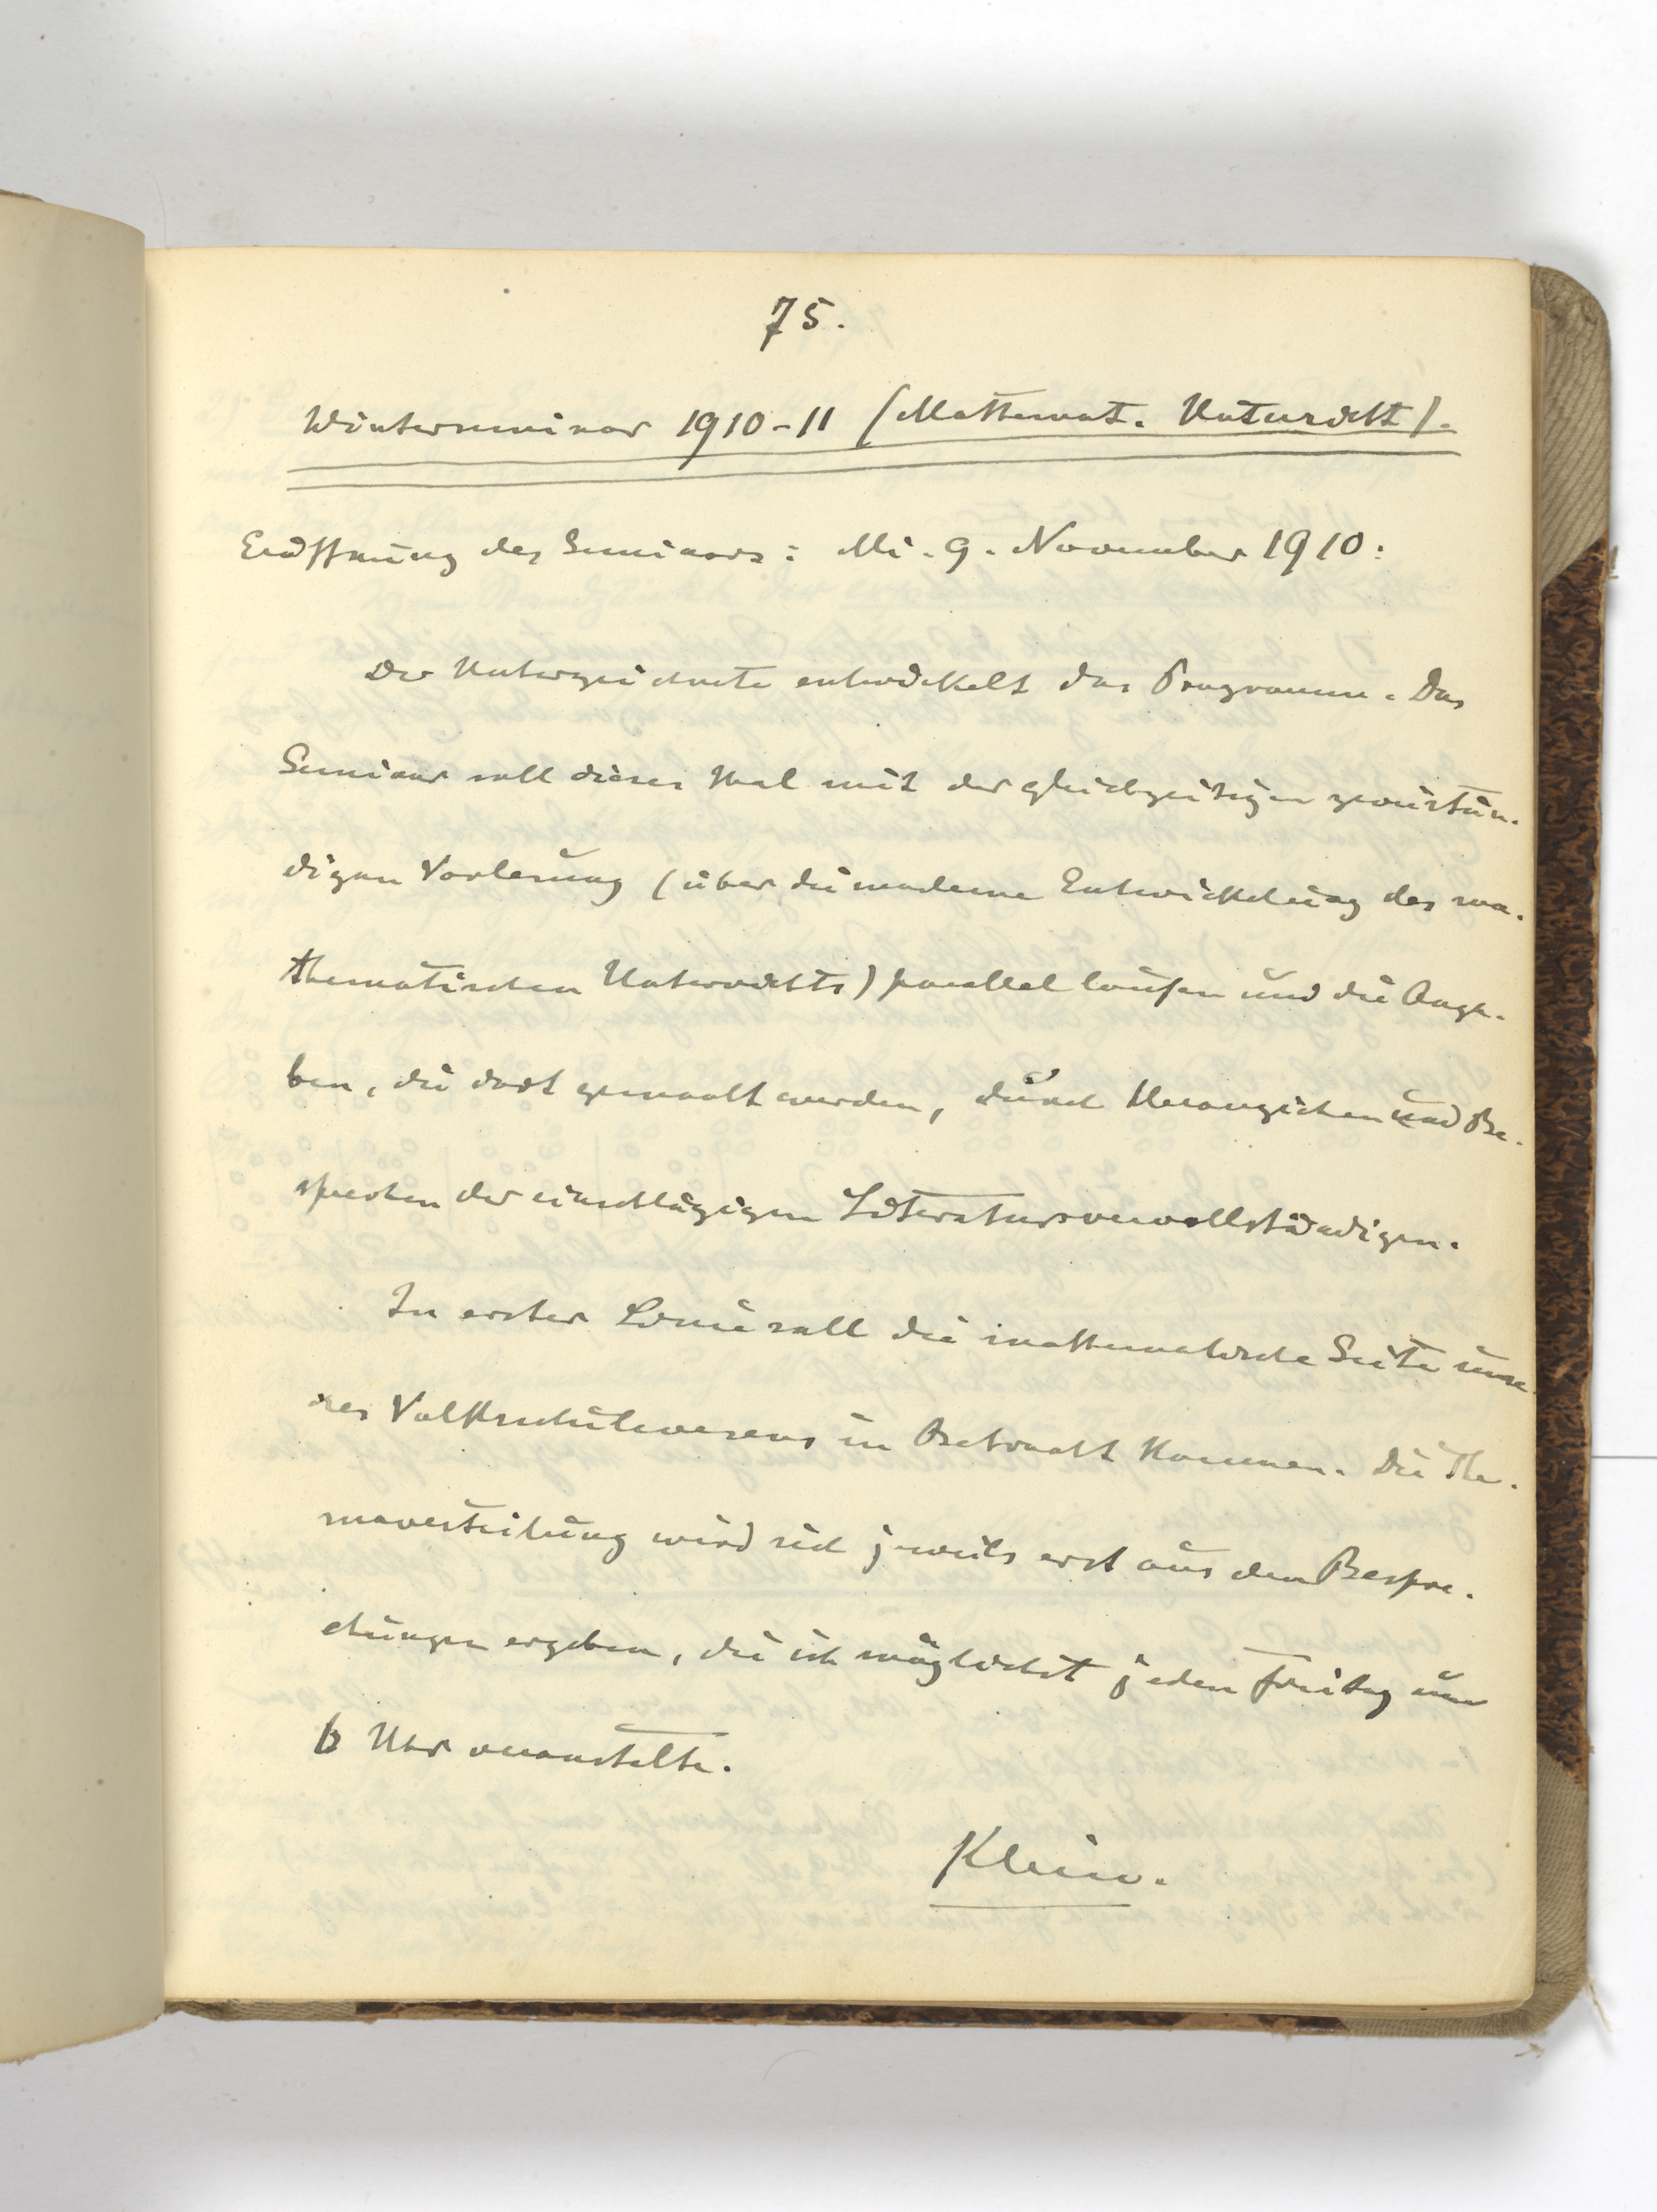 75.
Winterseminar 1910-11 (Mathemat. Unterricht).
Eröffnung des Seminars: Mi. 9. November 1910:
Der Unterzeichnete entwickelt das Programm. Das
Seminar soll dieses Mal mit der gleichzeitigen zweistün-
digen Vorlesung (über die moderne Entwickelung des ma-
thematischen Unterrichts) parallel laufen und die Anga-
ben, die dort gemacht werden, durch Heranziehen und Be-
sprechen der einschlägigen Literatur vervollständigen.
In erster Linie soll die mathematische Seite unse-
res Volksschulwesens in Betracht kommen. Die The-
maverteilung wird sich jeweils erst aus den Bespre-
chungen ergeben, die ich möglichst jeden Freitag um
6 Uhr veranstalte.
Klein.